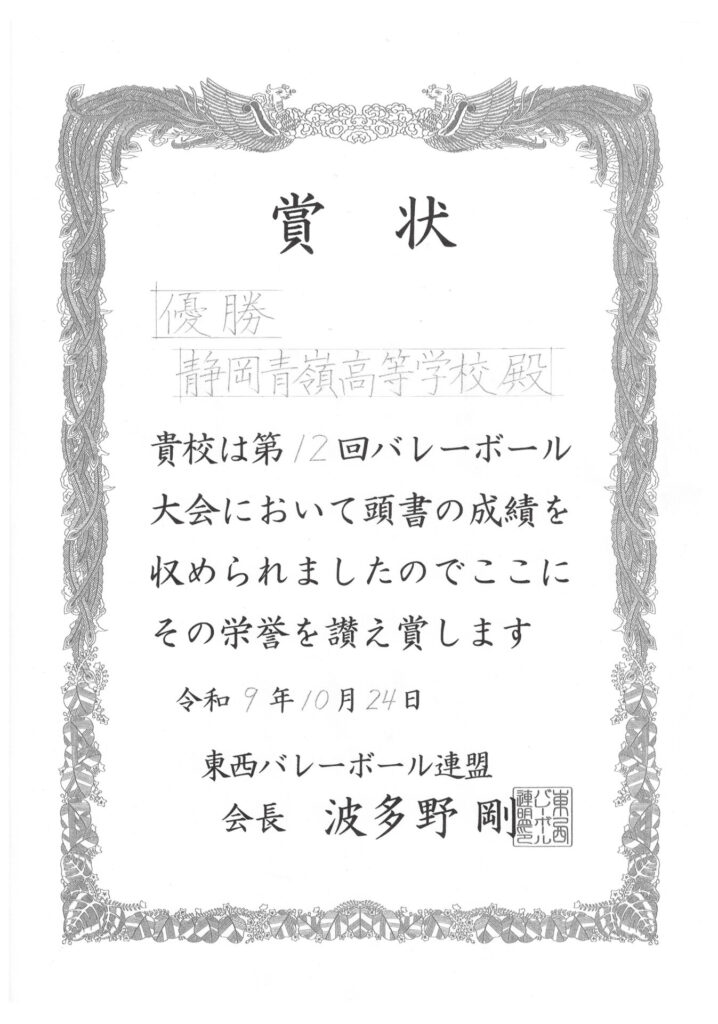 賞状
優勝
静岡青嶺高等学校殿
貴校は第12回バレーボール
大会において頭書の成績を
収められましたのでここに
その栄誉を讃え賞します
令和9年10月24日
東西バレーボール連盟
会長 波多野 剛
東西
バレーボール
連盟印